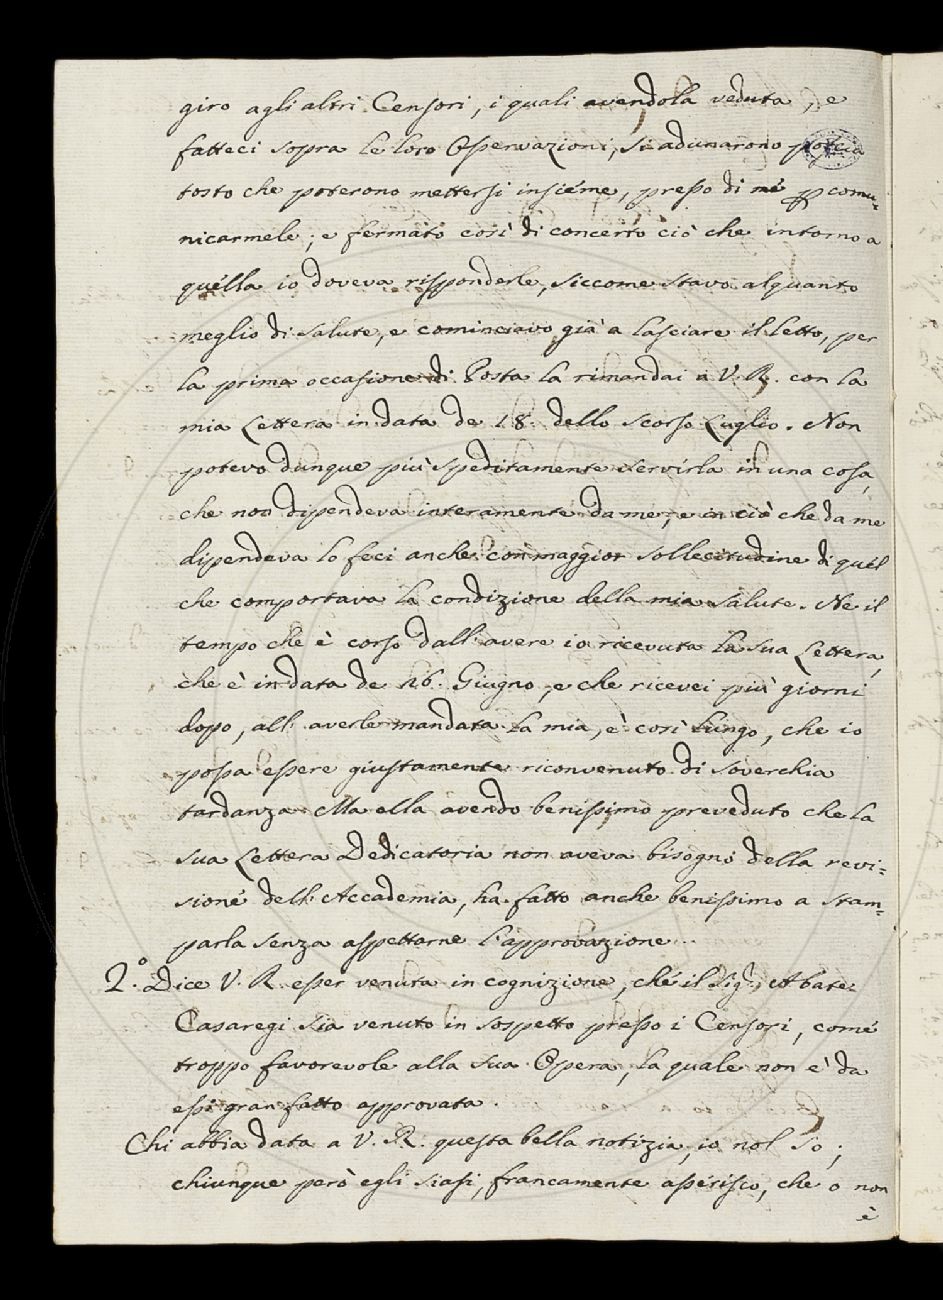 giro agli altri Censori, i quali avendola veduta, e
fatteci sopra le loro Osservazioni, si adunarono poscia
tosto che poterono mettersi insiéme, presso di mé ꝑ comu=
nicarmele; e fermato così di concerto ciò che intorno a
quélla io doveva risponderle, siccome stavo alquanto
meglio di salute, e cominciavo già a lasciare il letto, per
la prima occasione di Posta la rimandai a V. R. con la
mia Lettera in data de 18. dello scorso Luglio. Non
potevo dunque più speditamente servirla in una cosa,
che non dipendeva interamente da me, e in ciò che da me
dipendeva lo feci anche con maggior sollecitudine di quél
che comportava la condizione della mia salute. Ne il
tempo che è corso dall' avere io ricevuta la sua Lettera,
che è in data de 26. Giugno, e che ricevei più giorni
dopo, all' averle mandata la mia, è così lungo, che io
possa essere giustamente riconvenuto di soverchia
tardanza. Ma ella avendo benissimo preveduto che la
sua Lettera Dedicatoria non aveva bisogno della revi=
sione dell' Accademia, ha fatto anche benissimo a stam=
parla senza aspettarne l'approvazione.
2.º Dice V. R. esser venuta in cognizione, ché il Sig.r Abate
Casaregi sia venuto in sospetto presso i Censori, comé
troppo favorevole alla sua Opera, la quale non è da
essi gran fatto approvata.
Chi abbia data a V. R. questa bella notizia, io nol so;
chiunque però egli siasi, francamente asserisco, che o non
è